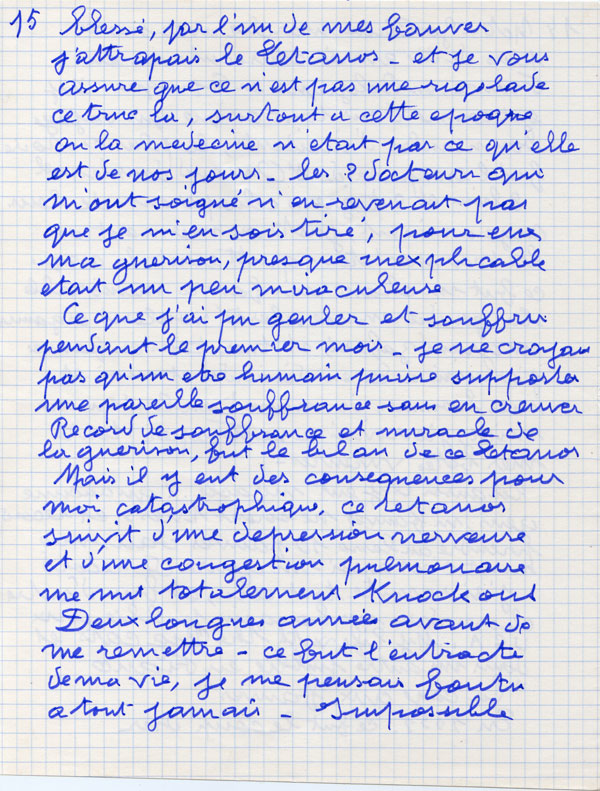 15 blessé, par l'un de mes fauves
j'attrapais le Tetanos - et je vous
assure que ce n'est pas une rigolade
ce truc la, surtout a cette epoque
ou la medecine n'etait pas ce qu'elle
est de nos jours - les ? docteurs qui
m'ont soigné n'en revenait pas
que je m'en sois tiré, pour eux
ma guerison, presque inexplicable
etait un peu miraculeuse
Ce que j'ai pu gueuler et souffrir
pendant le premier mois - je ne croyais
pas qu'un etre humain puisse supporter
une pareille souffrance sans en crever
Record de souffrance et miracle de
la guerison, fut le bilan de ce tetanos
Mais il y eut des consequences pour
moi catastrophique, ce tetanos
suivit d'une depression nerveuse
et d'une congestion pulmonaire
me mit totalement Knock out
Deux longues années avant de
me remettre - ce fut l'entracte
de ma vie, je me pensais foutu
a tout jamais - Impossible